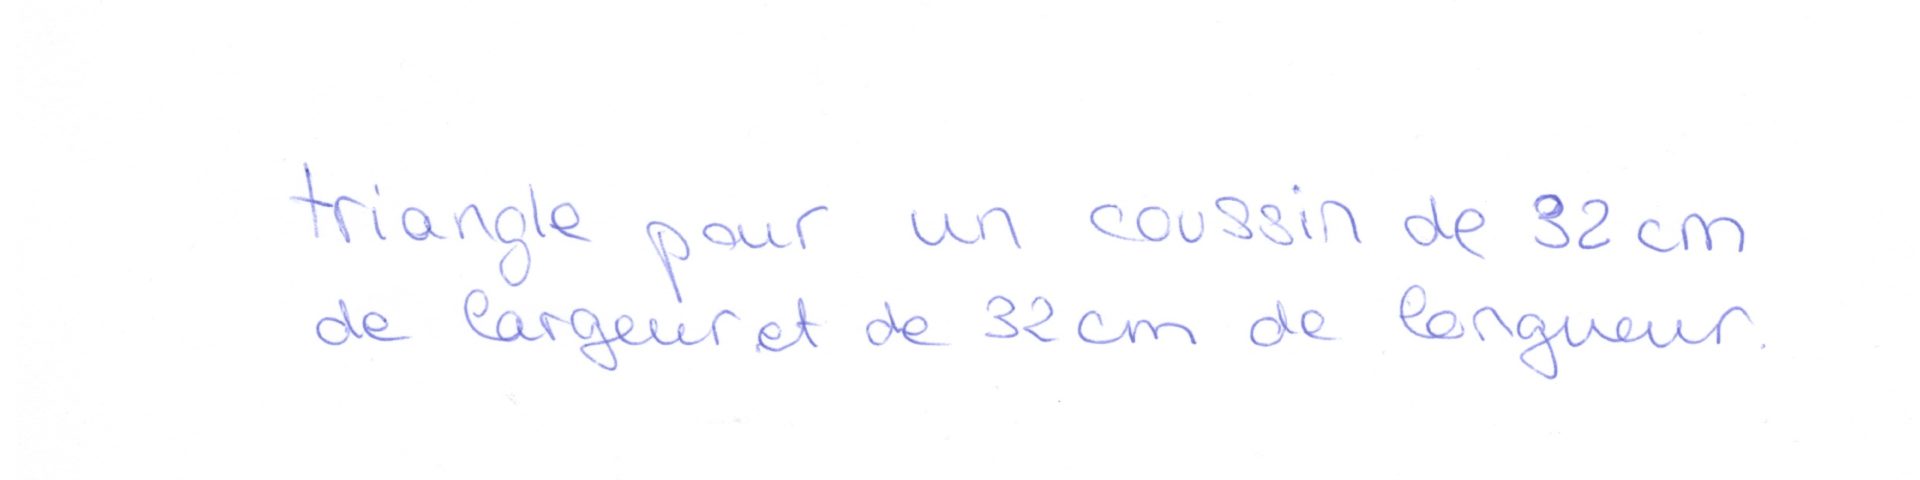 triangle pour un coussin de 32 cm
de largeur et de 32 cm de longueur.